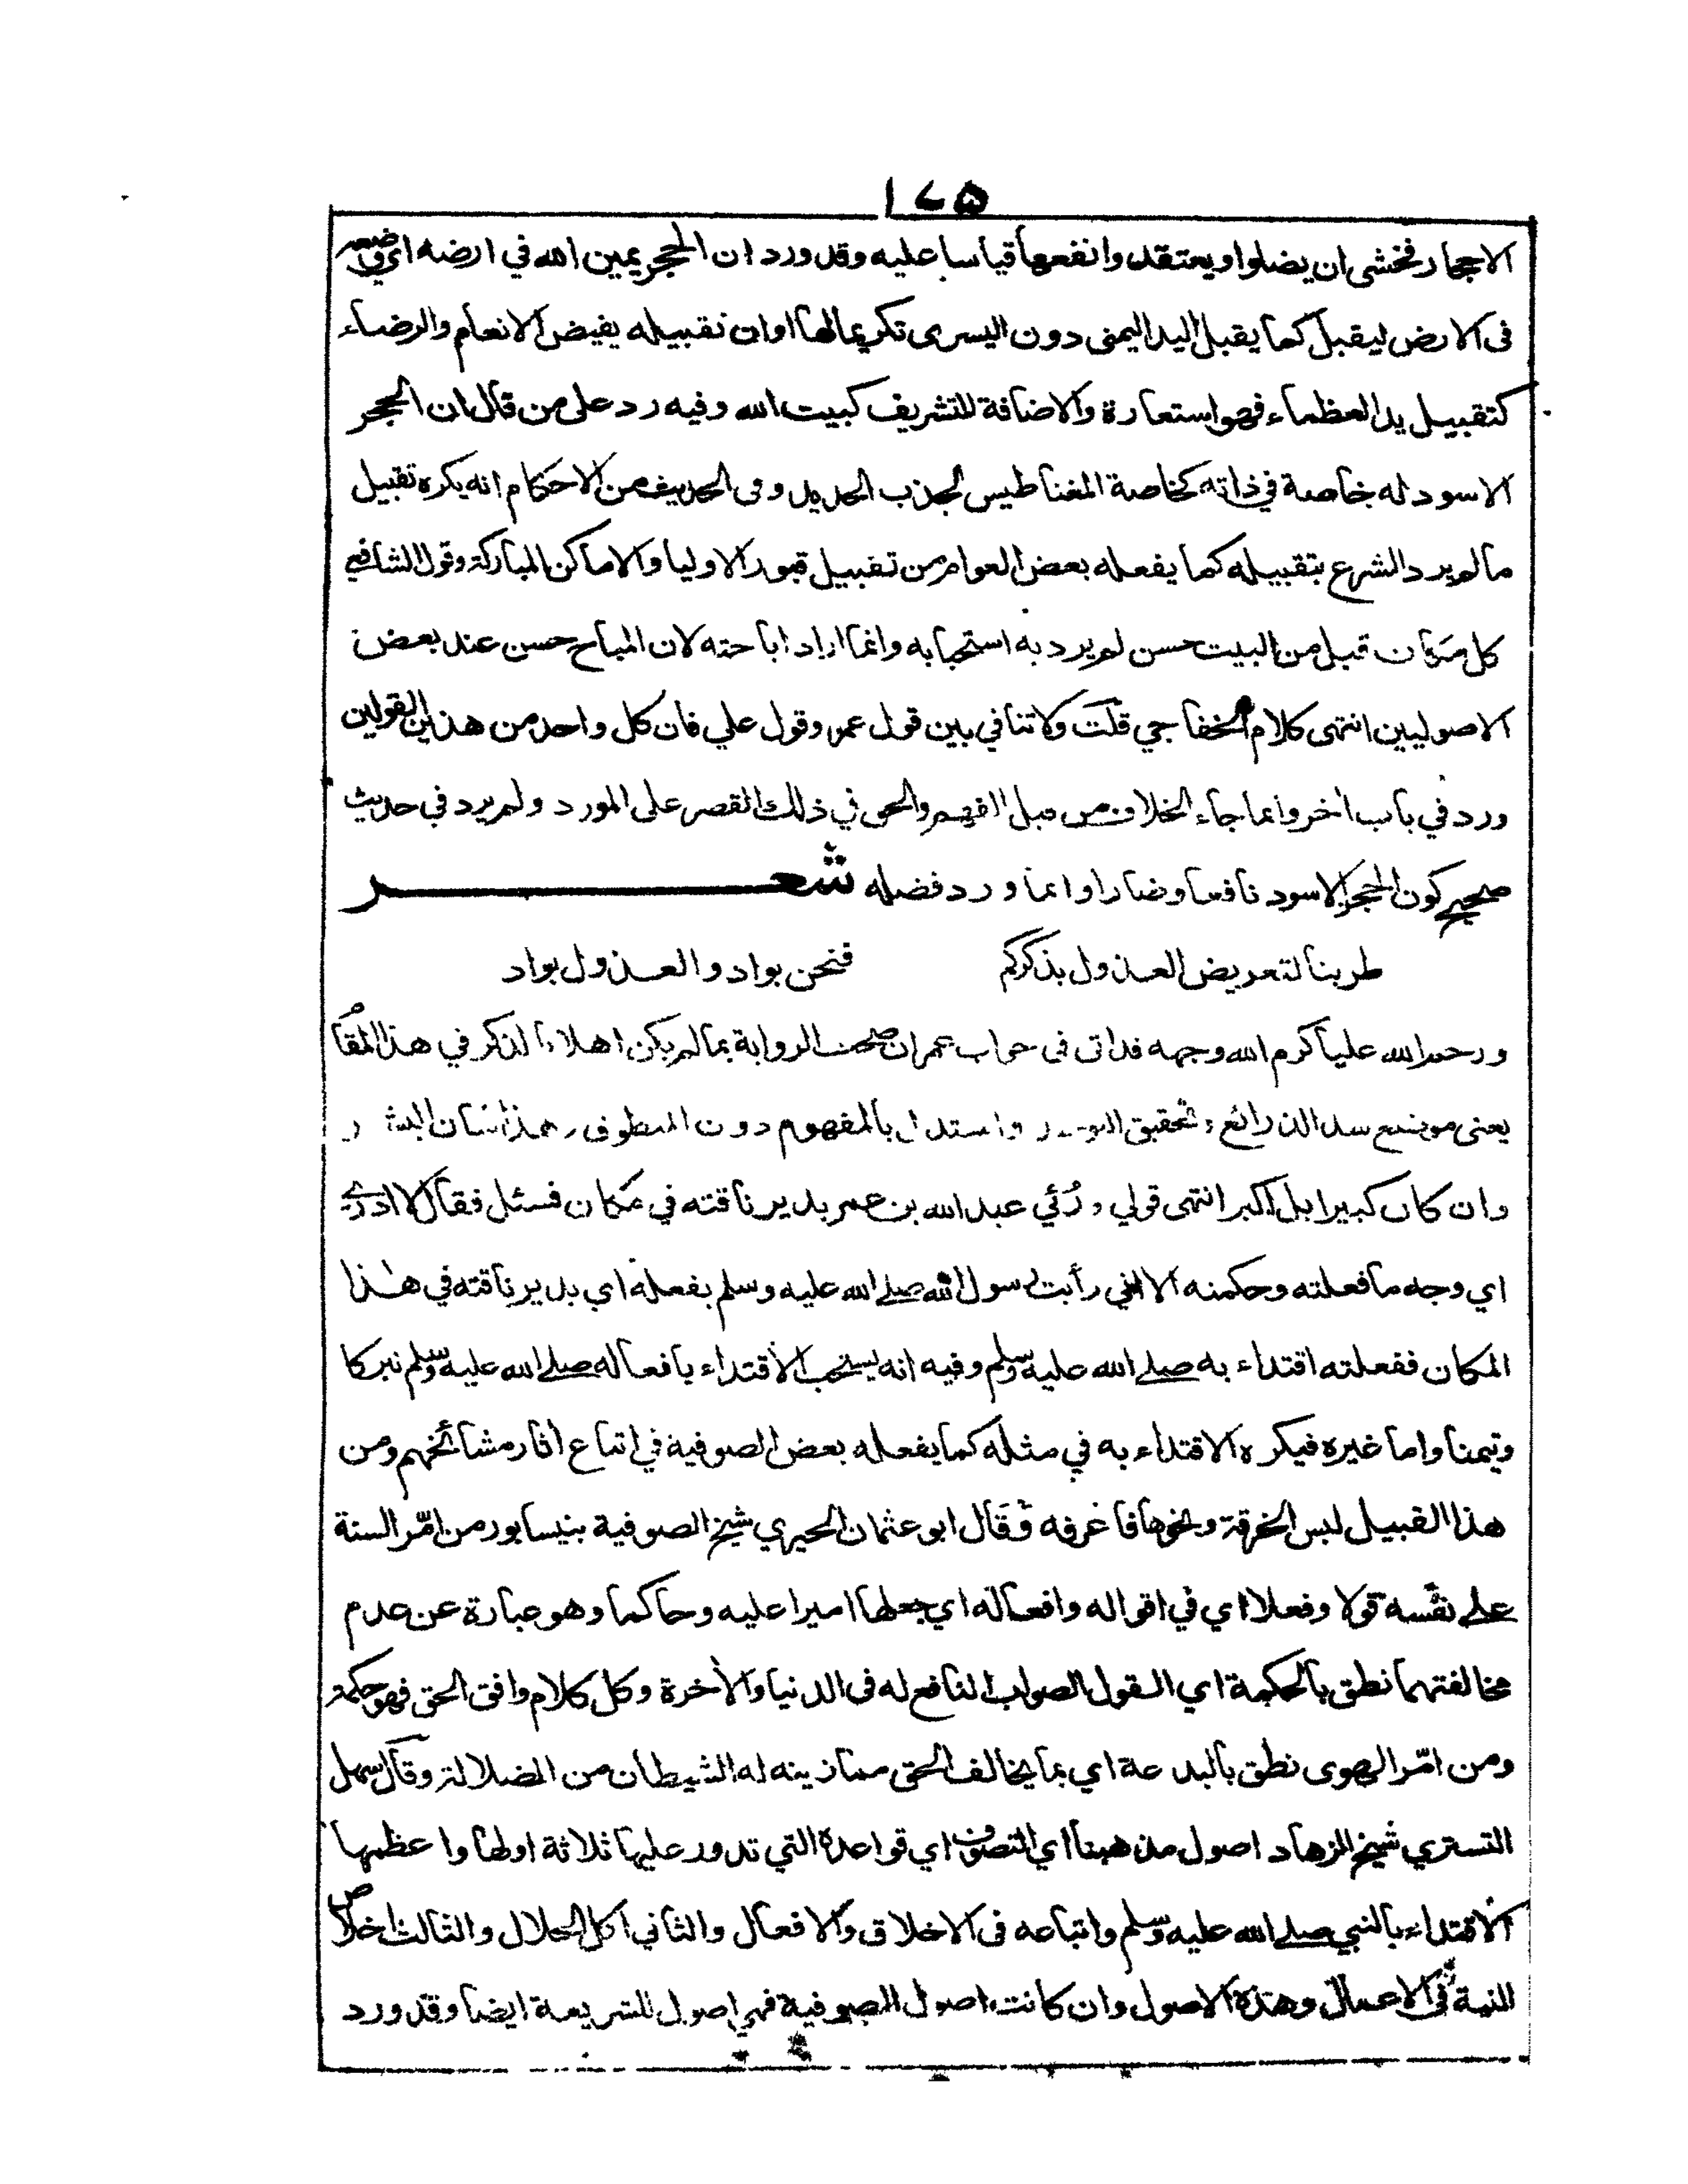 ١٧٥
الاحجار فخشى ان يضلوا ويعتقدوا نفعها قياسا عليه وقد ورد ان الحجر يمين الله في ارضه اي وضعه
فى الارض ليقبل كما يقبل اليد اليمنى دون اليسرى تكريما لها او ان تقبيله يفيض الانعام والرضاء
كتقبيل يد العظماء فهو استعارة والاضافة للتشريف كبيت الله وفيه رد على من قال ان الحجر
الاسود له خاصة في ذاته كخاصة المغناطيس لجذب الحديد وفى الحديث من الاحكام انه يكره تقبيل
ما لم يرد الشرع بتقبيله كما يفعله بعض العوام من تقبيل قبور الاوليا والاماكن المباركة وقول الشافعي
كل مكان قبل من البيت حسن لم يرد به استحبابه وانما اراد اباحته لان المباح حسن عند بعض
الاصوليين انتهى كلام الخفاجي قلت ولا تنافي بين قول عمر وقول علي فان كل واحد من هذين القولين
ورد في باب اخر وانما جاء الخلاف من قبل الفهم والحق في ذلك القصر على المورد ولم يرد في حديث
صحيح كون الحجر الاسود نافعا وضارا وانما ورد فضله شعر
طربنا لتعريض العذول بذكركم فنحن بواد والعذول بواد
ورحم الله عليا كرم الله وجهه فداتى فى جواب عمر ان صحت الرواية بما لم يكن اهلا للذكر في هذا المقام
يعنى موضع سد الذرائع وتحقيق واستدل بالمفهوم دون المنطوق وهذا شان البشر
وان كان كبيرا بل اكبر انتهى قولي ورُئي عبد الله بن عمر يدير ناقته في مكان فسئل فقال لا ادري
اي وجه ما فعلته وحكمته الا اني رأيت رسول الله صلى الله عليه وسلم يفعله اي يدير ناقته في هذا
المكان ففعلته اقتداء به صلى الله عليه وسلم وفيه انه يستحب الاقتداء بافعاله صلى الله عليه وسلم تبركا
وتيمنا واما غيره فيكره الاقتداء به في مثله كما يفعله بعض الصوفية في اتباع اثار مشائخهم ومن
هذا القبيل لبس الخرقة ونحوها فاعرفه وقال ابو عثمان الحيري شيخ الصوفية بنيسابور من امّر السنة
على نفسه قولا وفعلا اي في اقواله وافعاله اي جعلها اميرا عليه وحاكما وهو عبارة عن عدم
مخالفتهما نطق بالحكمة اي القول الصواب النافع له فى الدنيا والاخرة وكل كلام وافق الحق فهو حكمة
ومن امّر الهوى نطق بالبدعة اي بما يخالف الحق مما زينه له الشيطان من الضلالة وقال سهل
التستري شيخ الزهاد اصول مذهبنا اي التصوف اي قواعده التي تدور عليها ثلاثة اولها واعظمها
الاقتداء بالنبي صلى الله عليه وسلم واتباعه فى الاخلاق والافعال والثاني اكل الحلال والثالث اخلاص
النية في الاعمال وهذه الاصول وان كانت اصول الصوفية فهي اصول للشريعة ايضا وقد ورد